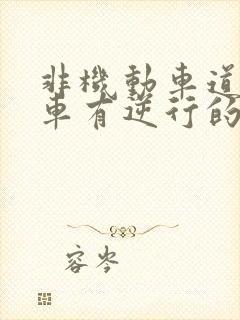 非機動車道
車有逆行的
容岑